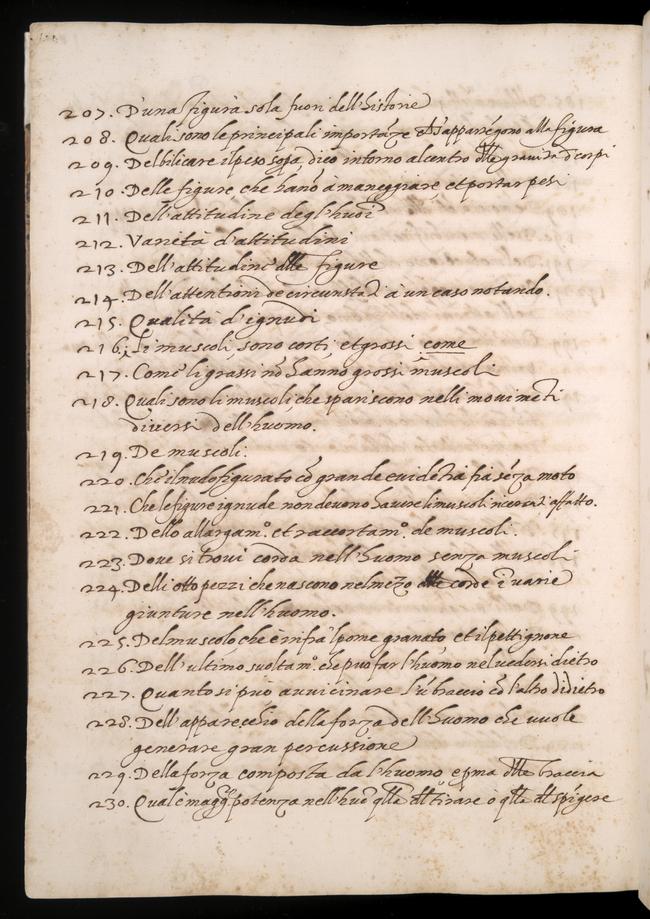 207. D'una figura sola fuori dell'historie
208. Quali sono le principali importāze ch's'apparrēgono alla figura
209. Del bilicare il peso sopa, dico intorno al centro dlla gravità d corpi
210. Delle figure che hāno à maneggiare, et portar pesi
211. Dell'attitudine degl'huoī
212. Varietà d'attitudini
213. Dell'attitudini dlle figure
214. Dell'attentioni de circunstāti à un caso notando.
215. Qualità d'ignudi
216. Li muscoli, sono corti, et grossi come
217. Come li grassi nō hanno grossi muscoli
218. Quali sono li muscoli, che spariscono nelli movimēti
diversi dell'huomo.
219. De muscoli.
220. Che il nudo figurato cō grande evidētia fia sēza moto
221. Che le figure ignude non devono havere li muscoli ricercati affatto.
222. Dello allargam.o et raccortam.o de muscoli.
223. Dove si trovi corda nell'huomo senza muscoli
224. Delli otto pezzi che nascono nel mezo dlle corde ī varie
giunture nell'huomo.
225. Del muscolo, che è infra 'l pome granato, et il pettignone
226. Dell'ultimo svoltam.o che puo far l'huomo nel vedersi dietro
227. Quanto si può avvicinare l'ū braccio cō l'altro di dietro
228. Dell'apparecchio della forza dell'huomo che vuole
generare gran percussione
229. Della forza composta da l'huomo e pma dlle braccia
230. Qual è magg.r potenza nell'huō qlla dl tirare ò qlla dl spīgere